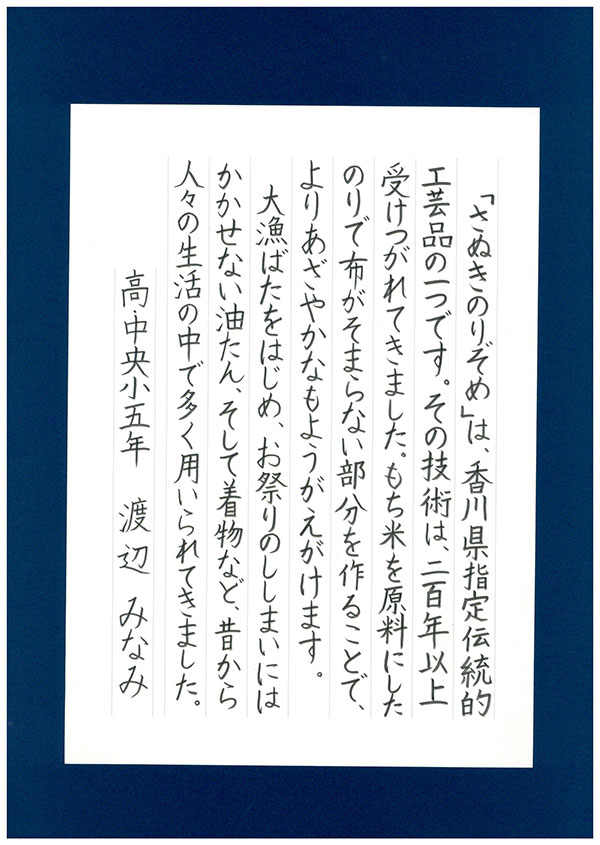 「さぬきのりぞめ」は、香川県指定伝統的
工芸品の一つです。その技術は、二百年以上
受けつがれてきました。もち米を原料にした
のりで布がそまらない部分を作ることで、
よりあざやかなもようがえがけます。
大漁ばたをはじめ、お祭りのししまいには
かかせない油たん、そして着物など、昔から
人々の生活の中で多く用いられてきました。
高・中央小五年 渡辺 みなみ